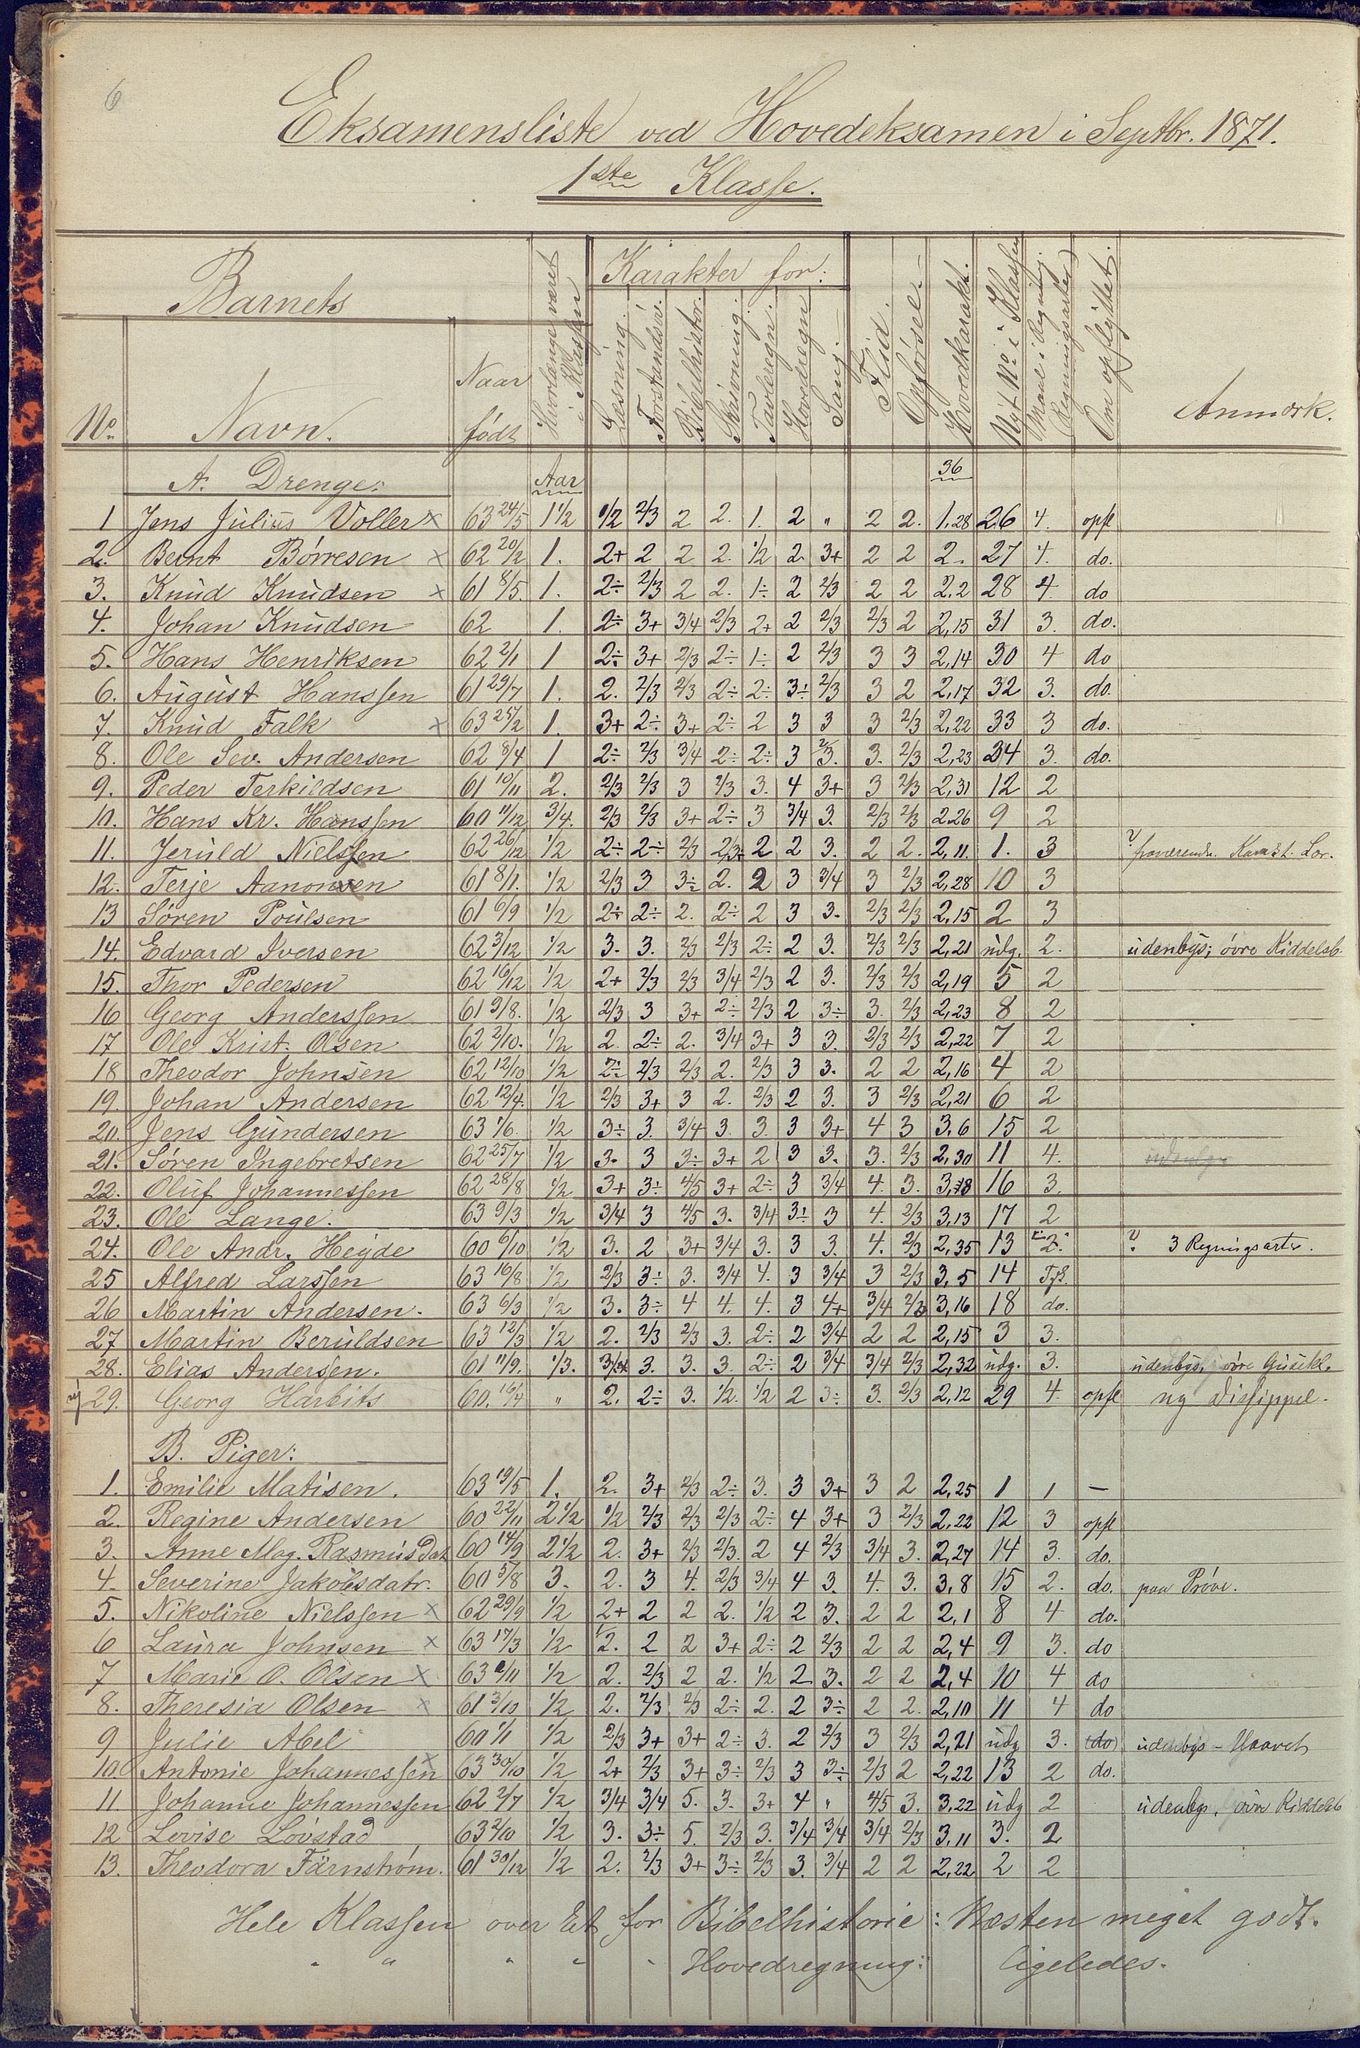 6
Eksamensliste ved Hovedeksamen i Septbr. 1871.
1ste Klasse.
Barnets
No. Navn. Naar født Hvorlænge været i Klassen Karakter for: Læsning. Forstandsø. Bibelhistor. Skrivning. Tavleregn. Hovedregn Sang. Flid. Opførsel. Hovedkarakt. Nyt No i Klassen Maal i Regning. (Regningsarter) Om opflyttet. Anmærk.
A. Drenge: Aar 36
1 Jens Julius Voller x 63 24/5 1 1/2 1/2 2/3 2 2. 1. 2 " 2 2. 1,28 26 4. opfl
2. Bernt Børresen x 62 20/2 1. 2+ 2 2 2. 1/2 2. 3+ 2 2 2. 27 4. do.
3. Knud Knudsen x 61 8/5. 1. 2÷ 2/3 2 2. 1÷ 2 2/3 2 2 2.2 28 4. do
4. Johan Knudsen 62 1. 2÷ 3+ 3/4 2/3 2+ 2 2/3 2/3 2 2,15 31 3. do.
5. Hans Henriksen 62 2/11 1 2÷ 3+ 2/3 2÷ 1÷ 2 2/3 3 3 2,14 30 4 do
6. August Hanssen 61 29/7 1. 2. 2/3 2/3 2÷ 2÷ 3÷ 2/3 3 2 2,17 32 3. do.
7. Knud Falk x 63 25/2 1. 3+ 2÷ 3+ 2÷ 2 3 3 3 2/3 2,22 33 3 do.
8. Ole Sev. Andersen 62 8/4 1 2÷ 2/3 3/4 2÷ 2÷ 3 2/3. 3. 2/3 2,23 34 3. do.
9. Peder Terkildsen 61 10/11 2. 2/3 2/3 3 2/3 3. 4 3+ 3 2/3 2,31 12 2
10. Hans Kr. Hanssen 60 11/12 3/4. 2/3 2/3 3+ 2÷ 3 3/4 3. 2/3 2/3 2,26 9 2
11. Jeruld Nielssen 62 26/12 1/2 2÷ 2÷ 2/3 2/3+ 2 2 3. 2 2. 2,11. 1. 3 fraværende.
12. Terje Aanonsen 61 8/1. 1/2 2/3 3 3÷ 2. 2 3 3/4 3 2/3 2,28 10 3
13 Søren Poulsen 61 6/9 1/2 2÷ 2÷ 2. 2÷ 2 3 3. 2/3 2/3 2,15 2 3
14. Edvard Iversen 62 3/12 1/2 3. 3. 2/3 2/3 2÷ 2 3. 2/3 2/3 2,21 udg. 2. udenbys; øvre Kiddelsb
15. Thor Pedersen 62 16/12 1/2 2+ 2/3 2/3 3/4 2/3 2 3. 2/3 2/3 2,19 5 2
16 Georg Anderssen 61 9/8. 1/2 2/3 3 3+ 2÷ 2/3 2 3÷ 3. 2/3 2,23 8 2
17 Ole Krist. Olsen 62 2/10. 1/2 2. 2÷ 2. 3/4 3+ 3 3. 2/3 2/3 2,22 7 2
18 Theodor Johnsen 62 12/10 1/2 2÷ 2/3 2/3 2. 2/3 3 3. 2 2 2,16 4 2
19. Johan Andersen 62 12/4. 1/2 2/3 3+ 3 2. 2/3 2 3. 3 2/3 2,21 6 2
20. Jens Gundersen 63 1/6. 1/2 3÷ 3. 3/4 3. 3. 3 3+ 4 3 3,6 15 2
21. Søren Ingebretsen 62 25/7 1/2 3. 3 3÷ 3+ 2 3 3. 3. 2/3 2,30 11 4. udenbys
22. Oluf Johannessen 62 28/8 1/2 3+ 3÷ 4/5 3+ 2÷ 3 3/4 4. 3. 3,18 16 3.
23. Ole Lange. 63 9/3 1/2 3/4 3 4/5 3. 3/4 3÷ 3 4. 2/3 3,13 17 2
24. Ole Andr. Heyde 60 6/10 1/2 3. 2 3+ 3/4 3. 3 3. 4. 2/3 2,35 13 2. 3 Regningsarter.
25 Alfred Larssen 63 16/8 1/2 2/3 3÷ 3. 3/4 4. 3 3/4 3 2/3 3,5 14
26 Martin Andersen. 63 6/3 1/2 3. 3÷ 4 4. 4. 3 4+ 3/4 2/3 3,16 18 do.
27 Martin Beruldsen 63 12/3 1/2 2. 2/3 2/3 3. 2÷ 2 3/4 2 2 2,15 3 3.
28. Elias Andersen. 61 11/9. 1/3. 3/4 3. 3. 3. 2÷ 2 3/4 3/4 2/3 2,32 udg. 3. udenbys,
29. Georg Harbits 60. 16/4 " 2. 2÷ 3. 1/2. 1/2 2 3÷ 3. 2/3 2,12 29 4. opfl ny Disippel.
B. Piger:
1. Emilie Matisen. 63 19/5 1. 2. 3+ 2/3 2÷ 3. 3 3+ 3 2 2,25 1 1 —
2. Regine Andersen 60 22/11 2 1/2 1/2 2/3 2/3 2/3 2÷ 4 3+ 3 2/3 2,22 12 3 opfl
3. Anne Mag. Rasmusdat 60 14/9 2 1/2 2. 3+ 2/3 2/3. 2 4 2/3 3/4 3. 2,27 14 3. do.
4. Severine Jakobsdatr. 60 5/8 3. 2. 3 4. 2/3 3/4 4 3. 4. 3. 3,8 15 2. do. paa Prøve.
5. Nikoline Nielssen x 62 29/9 1/2 2+ 2 2 2. 1/2 2 3. 2 2 2,1 8 4 do.
6 Laura Johnsen x 63 17/3 1/2 2. 2 2 3+ 2÷ 2 2/3 2 2 2,4 9 3. do
7 Marie O. Olsen x 63 6/11 1/2 2. 2/3 2 2. 1/2 2 3. 2 2 2,4 10 4 do
8. Theresia Olsen x 61 3/10 1/2 2. 2/3 2/3 2÷ 2. 2 3÷ 2 2. 2,10 11 4 do
9 Julie Abel 60 1/1 1/2 2/3 3+ 3+ 2÷ 3. 2 2/3 3 2/3 2,21 udg 3. (do) udenbys –
10 Antonie Johannessen x 63 30/10 1/2 2+ 2/3 3+ 3÷ 2/3 3 3÷ 2/3 2 2,22 13 2 do.
11. Johanne Johannessen 62 2/7 1/2 3/4 3/4 5. 3. 3+ 4 " 4/5 3. 3,22 udg 2 udenbys, øvre Kiddelsb
12 Lovise Løvstad 63 2/10 1/2 3. 3÷ 5. 2/3 3. 3/4 3/4 3/4 2/3 3,11 3. 2
13. Theodora Färnstrøm. 61 30/12 1/2 2. 2/3 3+ 3÷ 2/3 3. 3/4 2 2 2,22 2 2
Hele Klassen over Et for Bibelhistorie: Næsten meget godt.
" " " " " Hovedregning: ligeledes.